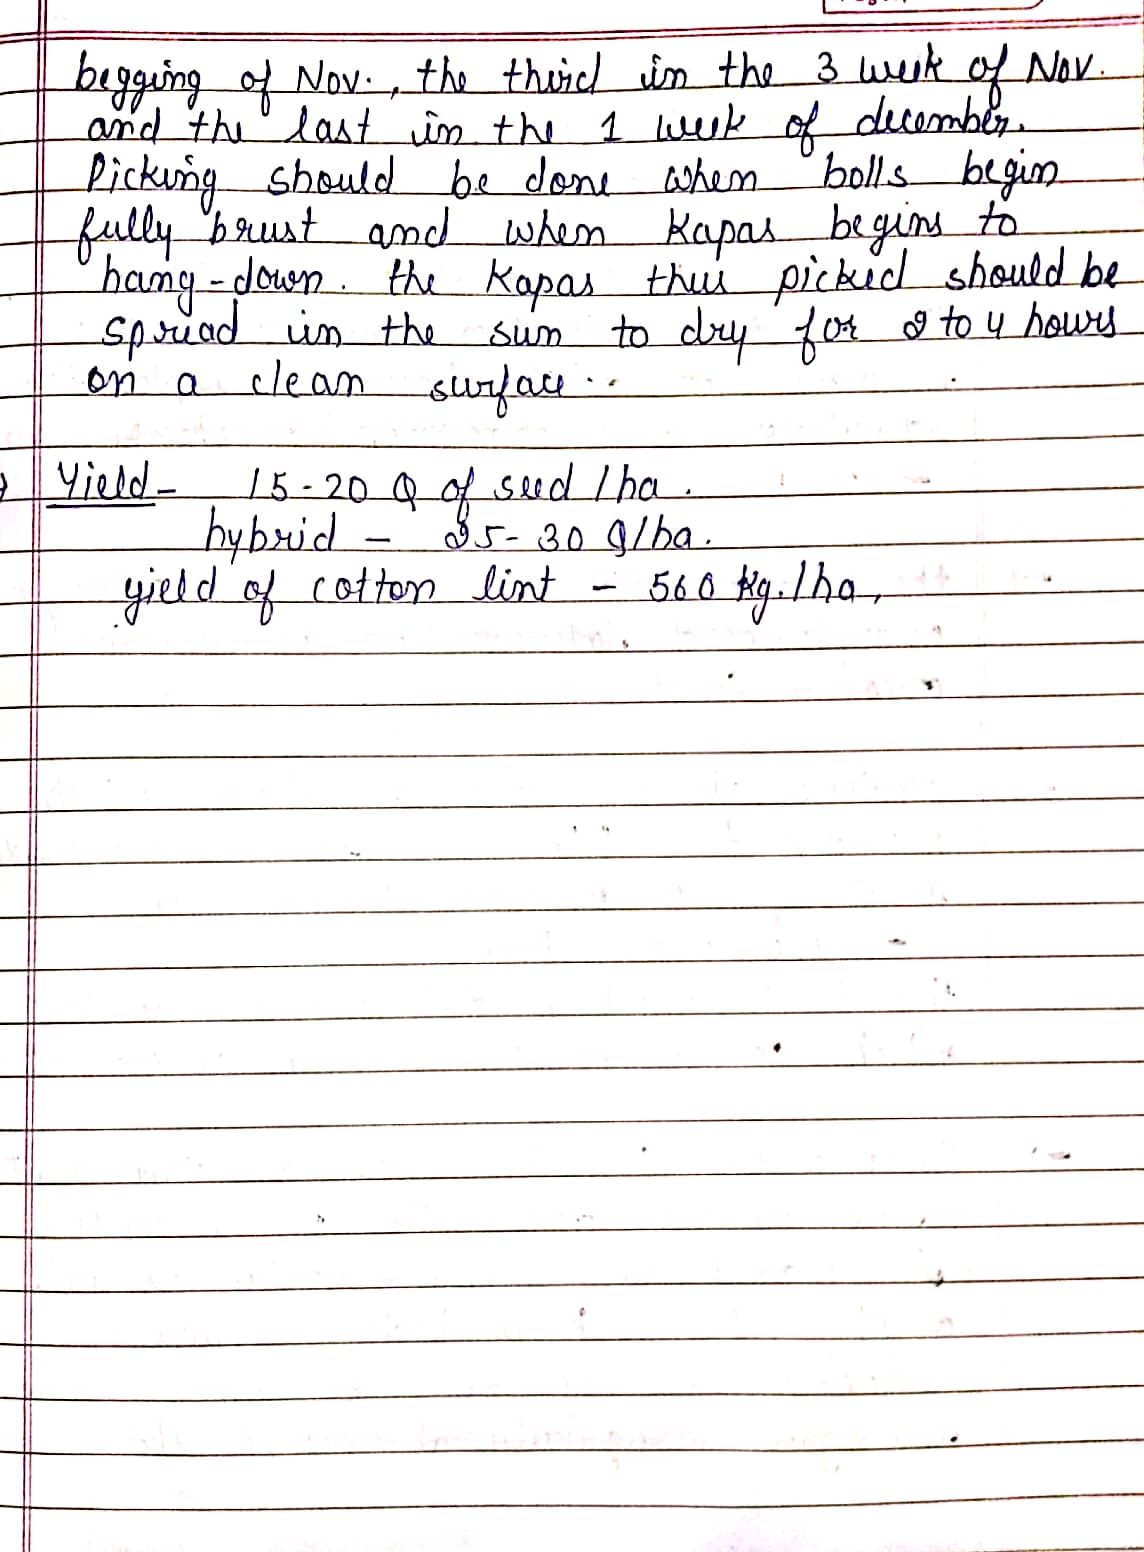 begging of Nov., the third in the 3 week of Nov.
and the last in the 1 week of december.
Picking should be done when bolls begin
fully brust and when Kapas begins to
hang-down. the Kapas thus picked should be
spread in the sun to dry for 2 to 4 hours
on a clean surface..
Yield- 15-20 Q of seed /ha.
hybrid - 25-30 q/ha.
yield of cotton lint - 560 Kg./ha,